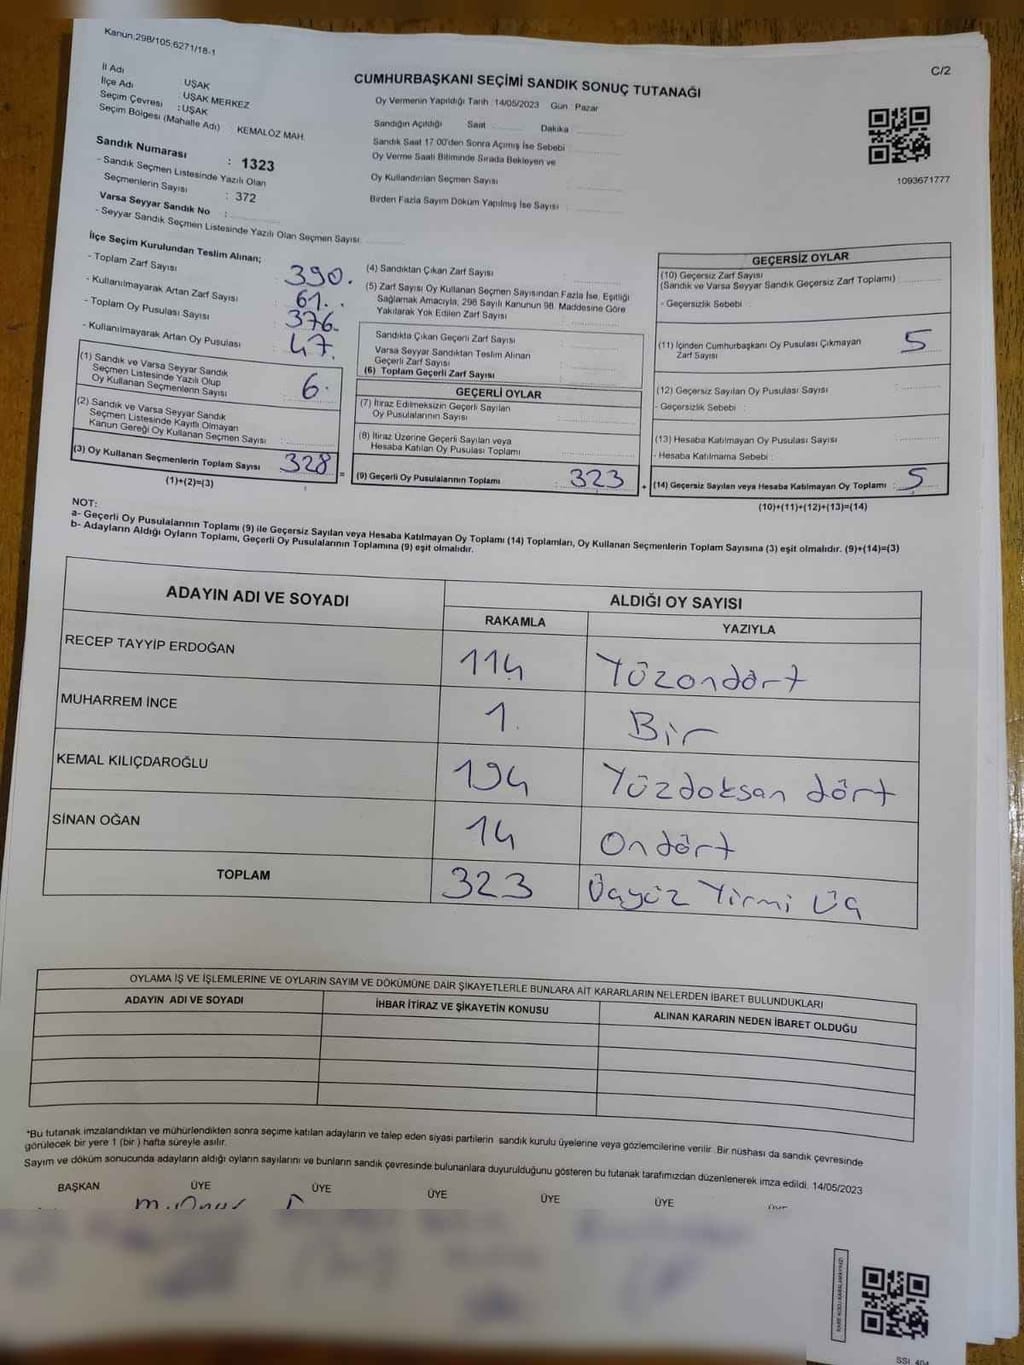 Kanun,298/105,6271/18-1
C/2
CUMHURBAŞKANI SEÇİMİ SANDIK SONUÇ TUTANAĞI
İl Adı UŞAK
İlçe Adı : UŞAK MERKEZ
Seçim Çevresi : UŞAK
Seçim Bölgesi (Mahalle Adı) KEMALÖZ MAH.
Sandık Numarası : 1323
- Sandık Seçmen Listesinde Yazılı Olan
Seçmenlerin Sayısı : 372
Varsa Seyyar Sandık No :
- Seyyar Sandık Seçmen Listesinde Yazılı Olan Seçmen Sayısı:
Oy Vermenin Yapıldığı Tarih :14/05/2023 Gün : Pazar
Sandığın Açıldığı Saat Dakika
Sandık Saat 17:00'den Sonra Açımış İse Sebebi
Oy Verme Saati Bitiminde Sırada Bekleyen ve
Oy Kullandırılan Seçmen Sayısı
Birden Fazla Sayım Döküm Yapılmış İse Sayısı :
1093671777
İlçe Seçim Kurulundan Teslim Alınan;
- Toplam Zarf Sayısı 390.
- Kullanılmayarak Artan Zarf Sayısı 61.
- Toplam Oy Pusulası Sayısı 376
- Kullanılmayarak Artan Oy Pusulası 47.
(1) Sandık ve Varsa Seyyar Sandık
Seçmen Listesinde Yazılı Olup
Oy Kullanan Seçmenlerin Sayısı 6.
(2) Sandık ve Varsa Seyyar Sandık
Seçmen Listesinde Kayıtlı Olmayan
Kanun Gereği Oy Kullanan Seçmen Sayısı
(3) Oy Kullanan Seçmenlerin Toplam Sayısı 328 =
(1)+(2)=(3)
(4) Sandıktan Çıkan Zarf Sayısı
(5) Zarf Sayısı Oy Kullanan Seçmen Sayısından Fazla İse, Eşitliği
Sağlamak Amacıyla, 298 Sayılı Kanunun 98. Maddesine Göre
Yakılarak Yok Edilen Zarf Sayısı
Sandıkta Çıkan Geçerli Zarf Sayısı
Varsa Seyyar Sandıktan Teslim Alınan
Geçerli Zarf Sayısı
(6) Toplam Geçerli Zarf Sayısı
GEÇERLİ OYLAR
(7) İtiraz Edilmeksizin Geçerli Sayılan
Oy Pusulalarının Sayısı
(8) İtiraz Üzerine Geçerli Sayılan veya
Hesaba Katılan Oy Pusulası Toplamı
(9) Geçerli Oy Pusulalarının Toplamı : 323 +
GEÇERSİZ OYLAR
(10) Geçersiz Zarf Sayısı
(Sandık ve Varsa Seyyar Sandık Geçersiz Zarf Toplamı)
- Geçersizlik Sebebi :
(11) İçinden Cumhurbaşkanı Oy Pusulası Çıkmayan
Zarf Sayısı 5
(12) Geçersiz Sayılan Oy Pusulası Sayısı
- Geçersizlik Sebebi :
(13) Hesaba Katılmayan Oy Pusulası Sayısı
- Hesaba Katılmama Sebebi :
(14) Geçersiz Sayılan veya Hesaba Katılmayan Oy Toplamı : 5
(10)+(11)+(12)+(13)=(14)
NOT:
a- Geçerli Oy Pusulalarının Toplamı (9) ile Geçersiz Sayılan veya Hesaba Katılmayan Oy Toplamı (14) Toplamları, Oy Kullanan Seçmenlerin Toplam Sayısına (3) eşit olmalıdır. (9)+(14)=(3)
b- Adayların Aldığı Oyların Toplamı, Geçerli Oy Pusulalarının Toplamına (9) eşit olmalıdır.
ADAYIN ADI VE SOYADI ALDIĞI OY SAYISI
RAKAMLA YAZIYLA
RECEP TAYYİP ERDOĞAN 114 Yüzondört
MUHARREM İNCE 1. Bir
KEMAL KILIÇDAROĞLU 194 Yüzdoksan dört
SİNAN OĞAN 14 Ondört
TOPLAM 323 Üçyüz Yirmi Üç
OYLAMA İŞ VE İŞLEMLERİNE VE OYLARIN SAYIM VE DÖKÜMÜNE DAİR ŞİKAYETLERLE BUNLARA AİT KARARLARIN NELERDEN İBARET BULUNDUKLARI
ADAYIN ADI VE SOYADI İHBAR İTİRAZ VE ŞİKAYETİN KONUSU ALINAN KARARIN NEDEN İBARET OLDUĞU
*Bu tutanak imzalandıktan ve mühürlendikten sonra seçime katılan adayların ve talep eden siyasi partilerin sandık kurulu üyelerine veya gözlemcilerine verilir. Bir nüshası da sandık çevresinde
görülecek bir yere 1 (bir ) hafta süreyle asılır.
Sayım ve döküm sonucunda adayların aldığı oyların sayılarını ve bunların sandık çevresinde bulunanlara duyurulduğunu gösteren bu tutanak tarafımızdan düzenlenerek imza edildi. 14/05/2023
BAŞKAN ÜYE ÜYE ÜYE ÜYE ÜYE